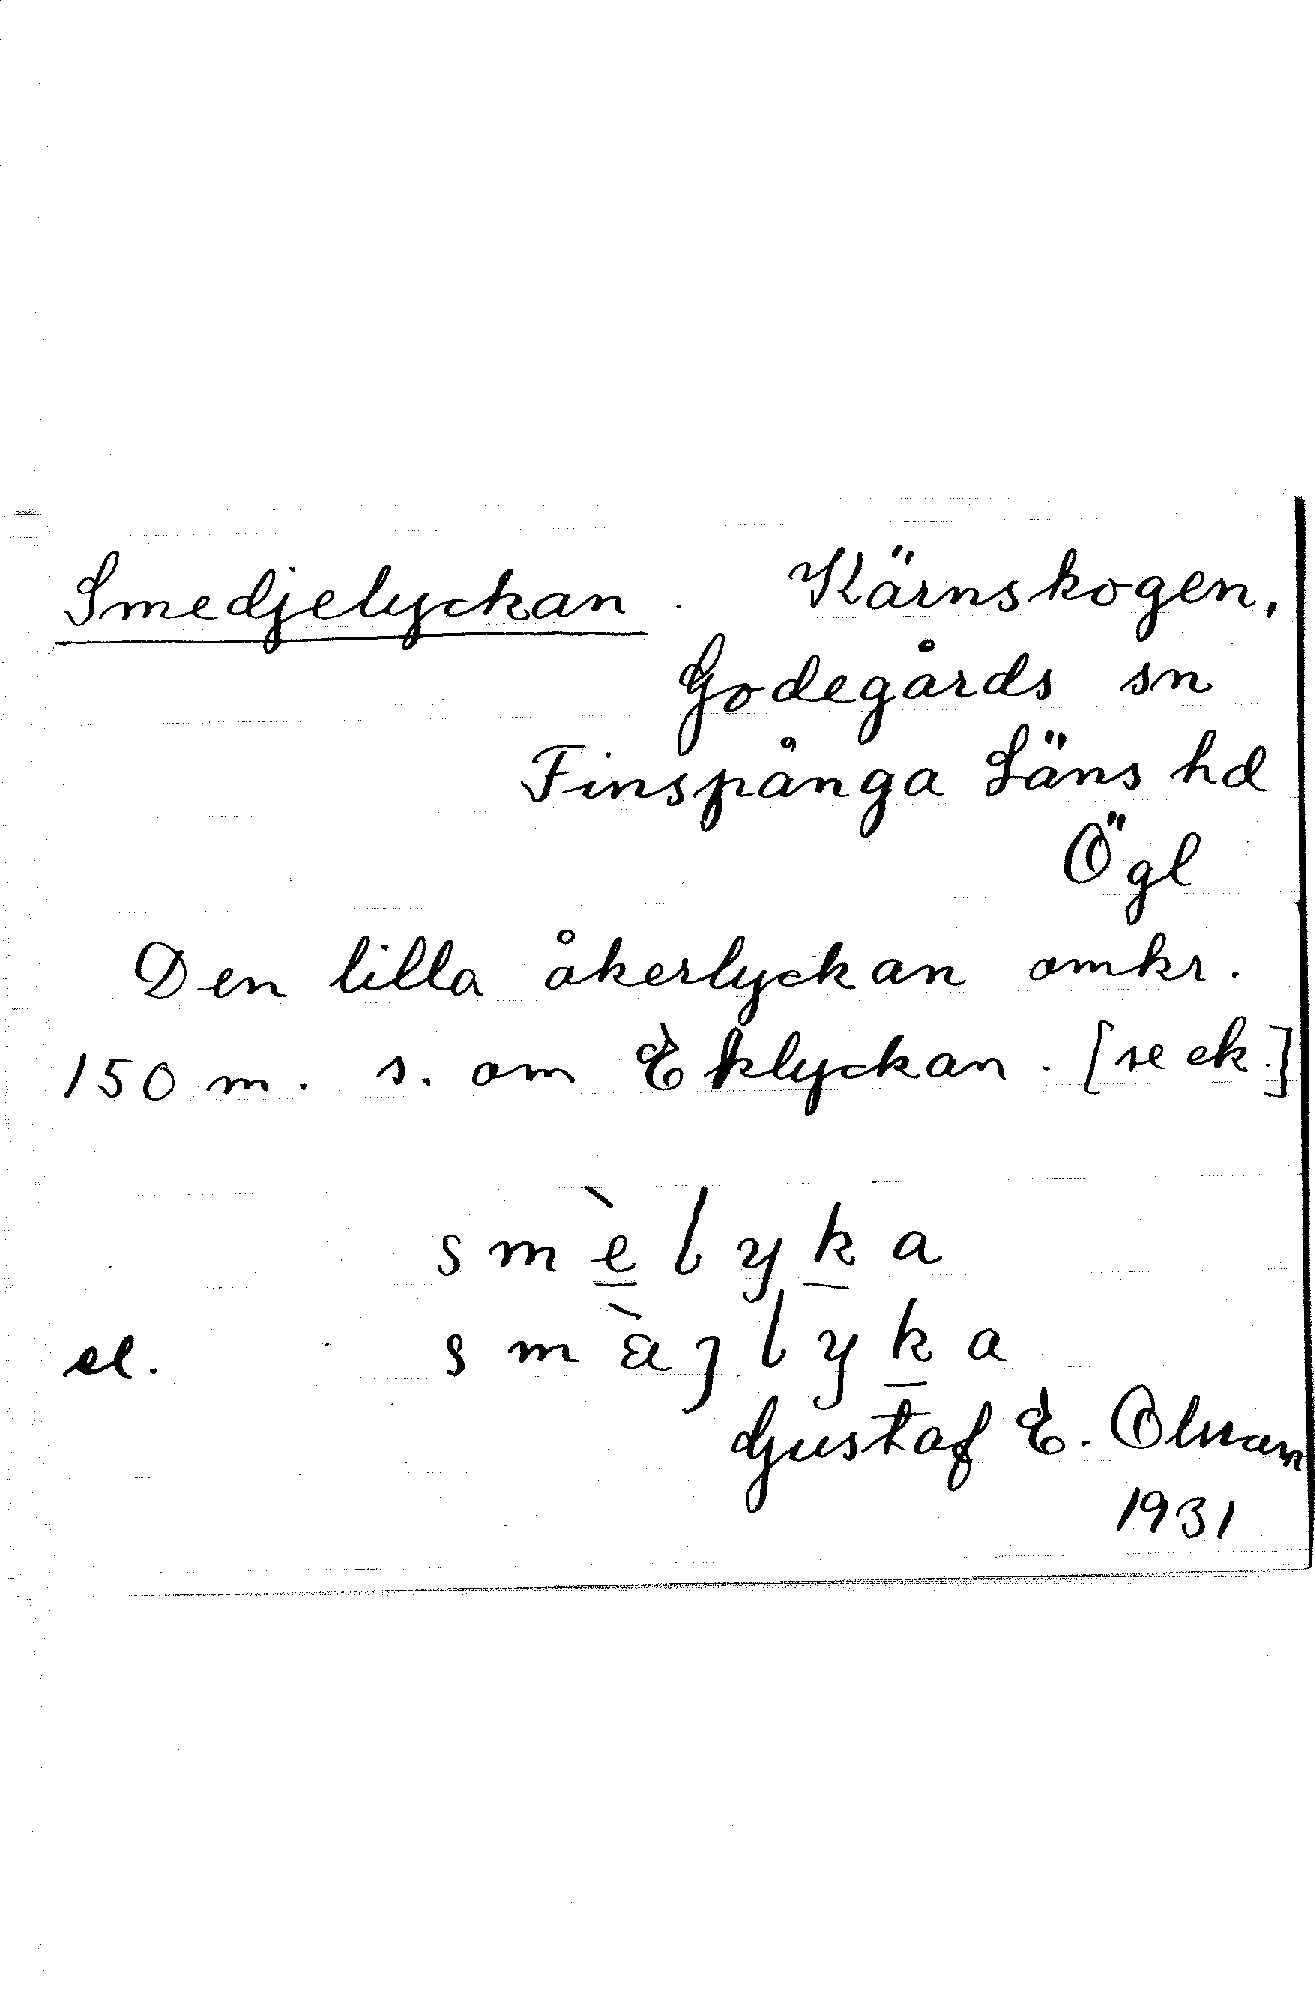 Smedjelyckan. Kärnskogen,
Godegårds sn
Finspånga Läns hd
Ögl
Den lilla åkerlyckan omkr.
150 m. s. om Eklyckan. [se ek.]
smèlyka
el. smàjlyka
Gustaf E. Olman
1931